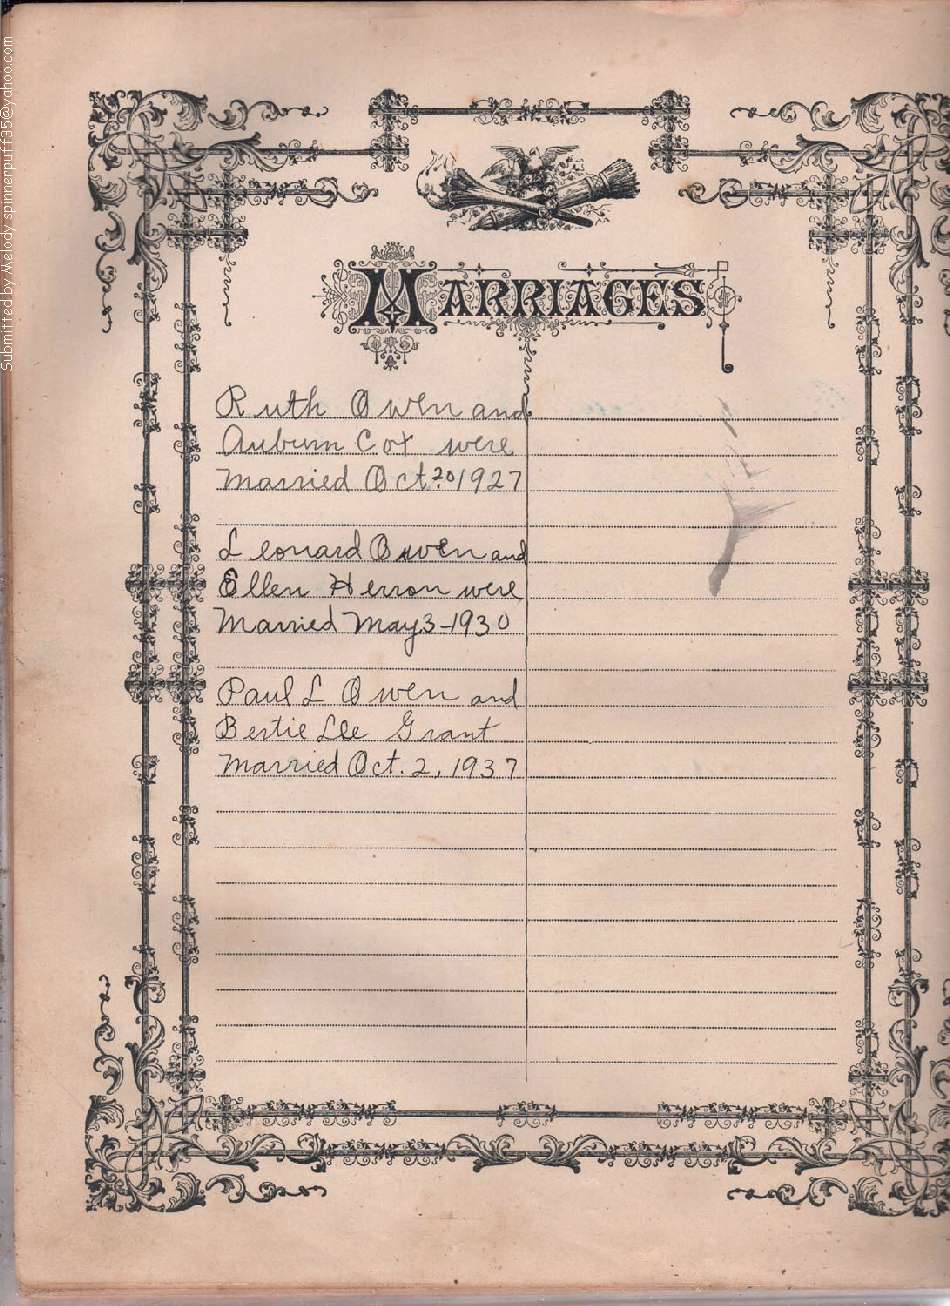 Submitted by Melody spinnerpuff35@yahoo.com
MARRIAGES
Ruth Owen and
Auburn Cox were
Married Oct. 20 1927
Leonard Owen and
Ellen Herron were
Married May 3-1930
Paul L Owen and
Bertie Lee Grant
Married Oct. 2, 1937